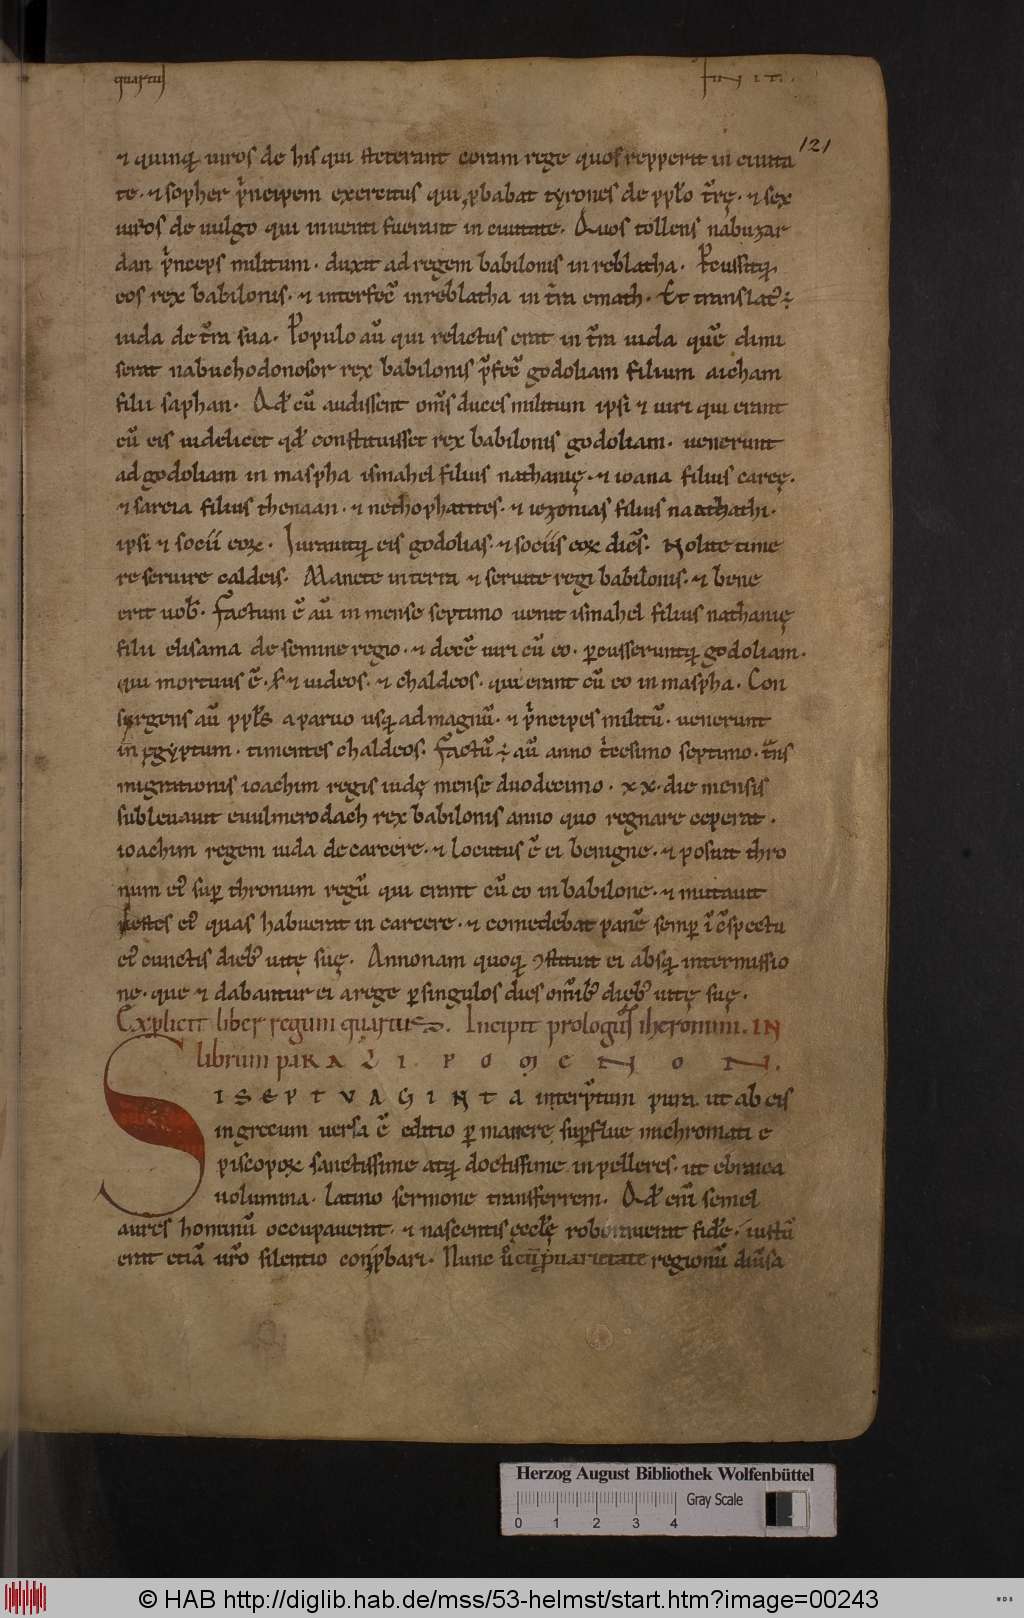 quartus
FINIT.
121
& quinq; uiros de his qui steterant coram rege quos repperit in ciuita
te. & sopher p̄ncipem exercitus qui ꝓbabat tyrones de pp̄lo t̄rę. & sex
uiros de uulgo qui inuenti fuerant in ciuitate. Quos tollens nabuzar
dan p̄nceps militum. duxit ad regem babilonis in reblatha. Percussitq;
eos rex babilonis. & interfec̄ in reblatha in t̄ra emath. Et translat᷒ ÷
iuda de t̄ra sua. Populo aū qui relictus erat in t̄ra iuda quē dimi
serat nabuchodonosor rex babilonis p̄fec̄ godoliam filium aicham
filii saphan. Qđ cū audissent om̄s duces militum ipsi & uiri qui erant
cū eis uidelicet qđ constituisset rex babilonis godoliam. uenerunt
ad godoliam in maspha ismahel filius nathanię. & ioana filius careę.
& sareia filius thenaan. & nethophatites. & iezonias filius naathathi.
ipsi & socii eoꝝ. Iurauitq; eis godolias. & sociis eoꝝ dicēs. Nolite time
re seruire caldeis. Manete in terra & seruite regi babilonis. & bene
erit uob̄. Factum ē aū in mense septimo uenit ismahel filius nathanię
filii elisama de semine regio. & decē uiri cū eo. ꝑcusseruntq; godoliam.
qui mortuus ē. s; & iudeos. & chaldeos. qui erant cū eo in maspha. Con
surgens aū pp̄ls a paruo usq; ad magnū. & p̄ncipes militū. uenerunt
in ęgyptum. timentes chaldeos. Factū ÷ aū anno t̄cesimo septimo. t̄ns
migrationis ioachim regis iudę mense duodecimo. xx. die mensis
subleuauit euulmerodach rex babilonis anno quo regnare ceperat.
ioachim regem iuda de carcere. & locutus ē ei benigne. & posuit thro
num ei᷒ suꝑ thronum regū qui erant cū eo in babilone. & mutauit
uestes ei᷒ quas habuerat in carcere. & comedebat panē semꝑ ī c̄spectu
ei᷒ cunctis dieb᷒ uitę suę. Annonam quoq; ꝯstituit ei absq; intermissio
ne. que & dabantur ei a rege ꝑ singulos dies om̄ib᷒ dieb᷒ uitę suę.
Explicit liber regum quartus. Incipit prologus iheronimi. IN
librum paRALIPOMENON.
SI SEPTVAGINTA interp̄tum pura. ut ab eis
in grecum uersa ē editio ꝑmaneret suꝑflue mi chromati e
piscopoꝝ sanctissime atq; doctissime inpelleres. ut ebraica
uolumina. latino sermone transferrem. Qđ enī semel
aures hominū occupauerat. & nascentis ęccl̄ę roborauerat fidē. iustū
erat etiā n̄ro silentio conꝓbari. Nunc ū cū ꝓ uarietate regionū diūsa
Herzog August Bibliothek Wolfenbüttel
Gray Scale
0 1 2 3 4
© HAB http://diglib.hab.de/mss/53-helmst/start.htm?image=00243